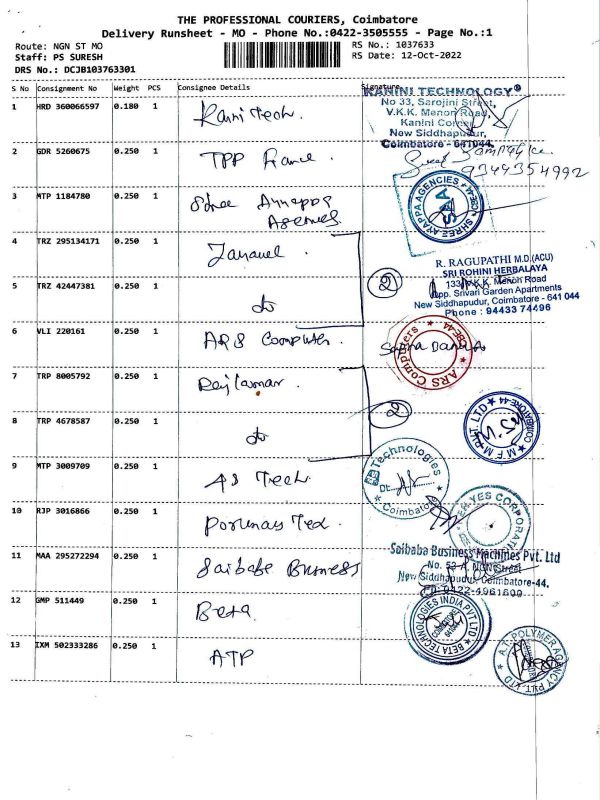 THE PROFESSIONAL COURIERS, Coimbatore
Delivery Runsheet - MO - Phone No.:0422-3505555 - Page No.:1
Route: NGN ST MO
Staff: PS SURESH
DRS No.: DCJB103763301
RS No.: 1037633
RS Date: 12-Oct-2022
S No Consignment No Weight PCS Consignee Details Signature
1 HRD 360066597 0.180 1 Kani Tech.
KANINI TECHNOLOGY
No 33, Sarojini Street,
V.K.K. Menon Road,
Kanini Corner
New Siddhapudur,
Coimbatore - 641044.
2 GDR 5260675 0.250 1 TPP
9344354992
3 MTP 1184780 0.250 1 Shree Ayyappa
Agencies
SHREE AYYAPPA AGENCIES CBE-44
SAA
4 TRZ 295134171 0.250 1
2
R. RAGUPATHI M.D.(ACU)
SRI ROHINI HERBALAYA
133, V.K.K. Menon Road
Opp. Srivari Garden Apartments
New Siddhapudur, Coimbatore - 641 044
Phone : 94433 74496
5 TRZ 42447381 0.250 1 do
6 VLI 220161 0.250 1 ARS Computer
ARS Computers CBE-44
7 TRP 8005792 0.250 1
2
8 TRP 4678587 0.250 1 do
M F M PVT. LTD COIMBATORE-44
9 MTP 3009709 0.250 1 AS Tech.
Technologies
Coimbatore
10 RJP 3016866 0.250 1
YES CORPORATION
11 MAA 295272294 0.250 1 Saibaba Business
Saibaba Business Machines Pvt. Ltd
No. 53-A, NGN Street
New Siddhapudur, Coimbatore-44.
0422-4961600
12 GMP 511449 0.250 1 Beta
BETA TECHNOLOGIES INDIA PVT LTD
13 IXM 502333286 0.250 1 ATP
A.T. POLYMER AGENCY PVT. LTD